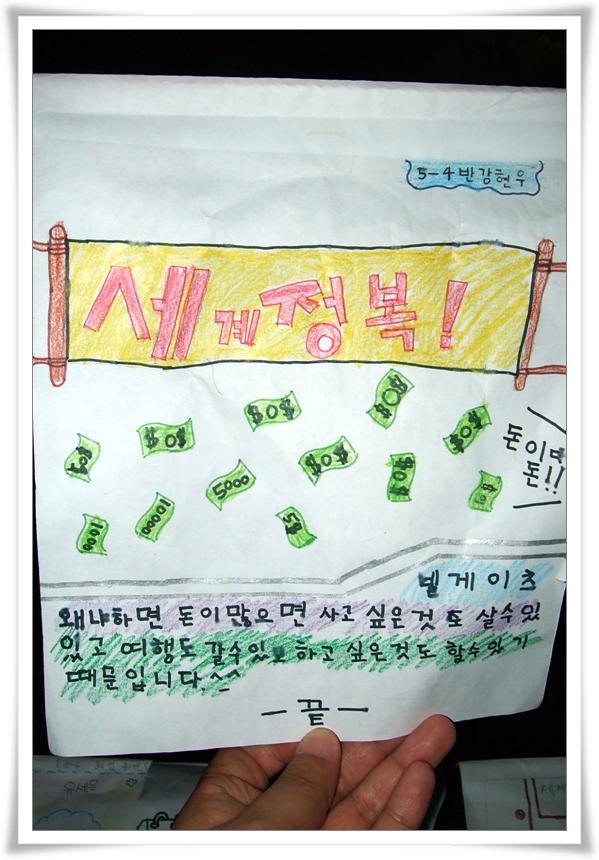 5-4반강현우
세계정복!
$0$
$0$
$0$
$0$
$0$
$0$
5000
$0$
10000
1000
$5
돈이다
돈!!
빌게이츠
왜냐하면 돈이많으면 사고 싶은것도 살수있
있고 여행도 갈수있고 하고 싶은것도 할수있기
때문입니다.^^
-끝-